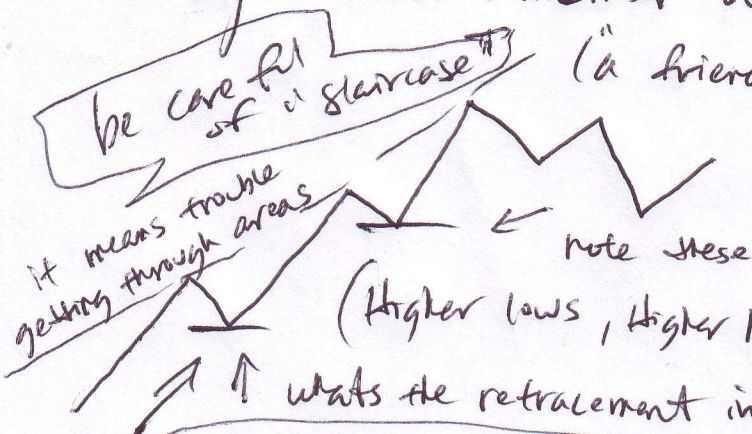 be careful
of "staircase"
("a frien
it means trouble
getting through areas
note these
(Higher lows, Higher
whats the retracement in